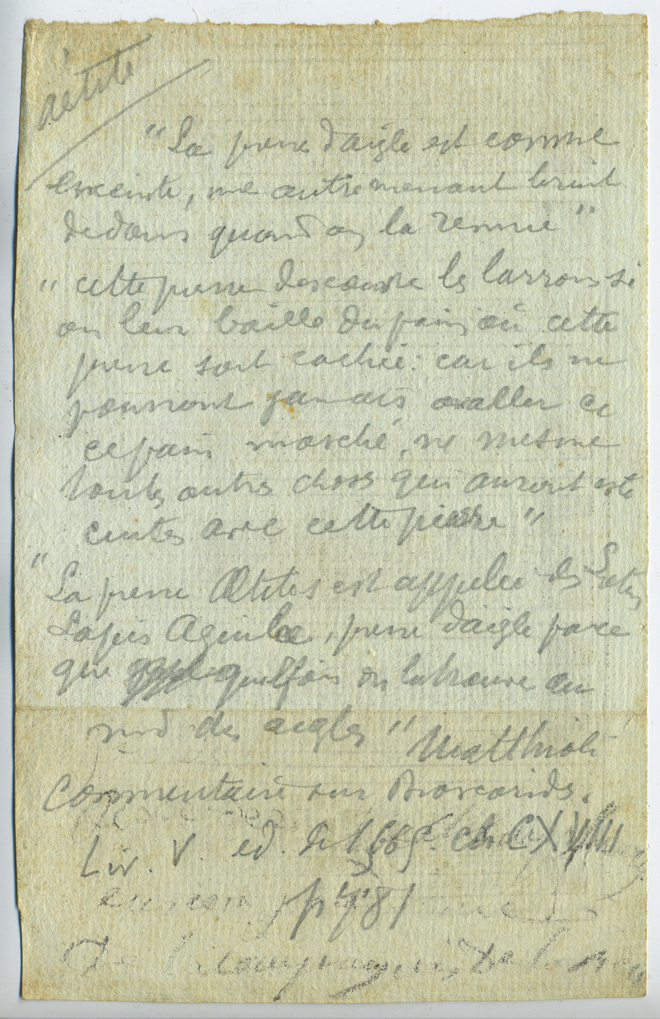 aétite
"La pierre d'aigle est comme
enceinte, une autre menant bruit
dedans quand on la remue"
"cette pierre descouvre les larrons si
on leur baille du pain où cette
pierre soit cachée : car ils ne
pourront jamais avaller ce
ce pain masché, ne mesme
toutes autres choses qui auront esté
cuites avec cette pierre"
"La pierre Ætites est appelée des Latins
Lapis Aquilae, pierre d'aigle parce
que quelfois on la trouve au
nid des aigles" Matthioli
Commentaire sur Dioscorides.
Liv. V. ed. de 1665. ch CXVIII
p 481
De la